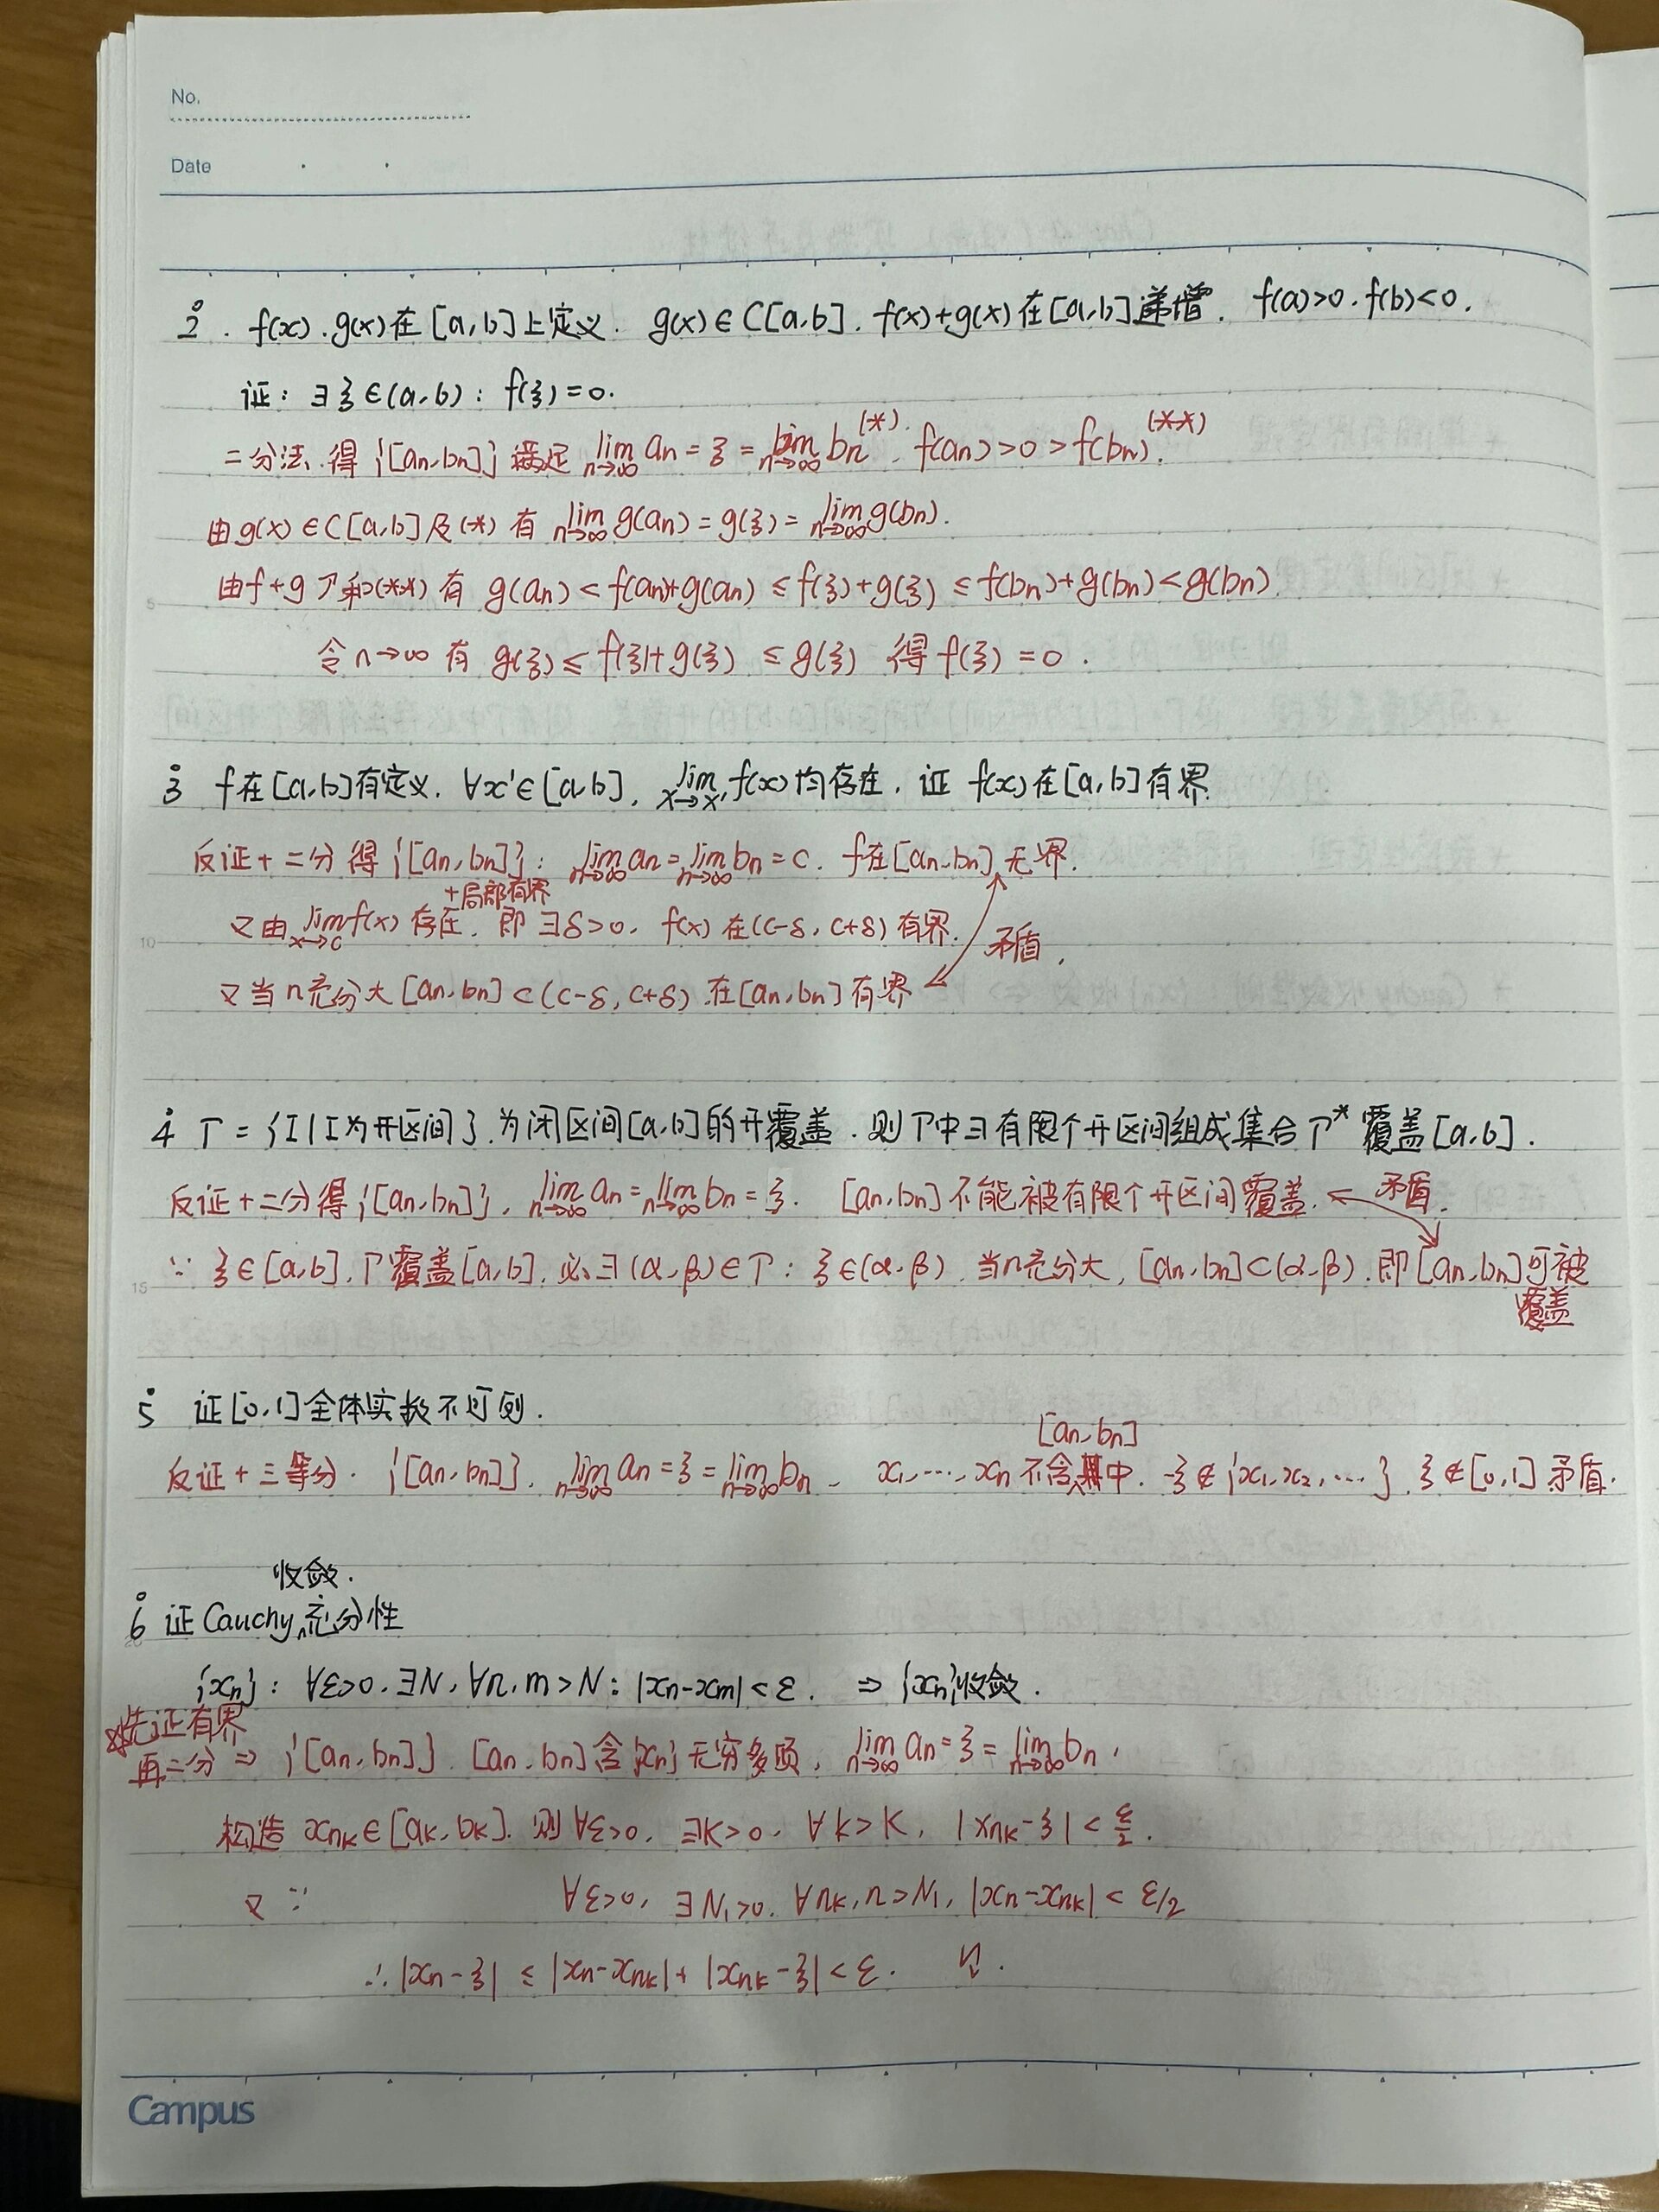 No.
Date
2. f(x). g(x)在[a,b]上定义. g(x)∈C[a,b]. f(x)+g(x)在[a,b]递增. f(a)>0. f(b)<0.
证: ∃ξ∈(a,b): f(ξ)=0.
二分法. 得{[an,bn]}满足 lim n→∞ an = ξ = lim n→∞ bn (*). f(an)>0>f(bn) (**).
由g(x)∈C[a,b]及(*)有 lim n→∞ g(an) = g(ξ) = lim n→∞ g(bn).
由f+g↗和(**)有 g(an) < f(an)+g(an) ≤ f(ξ)+g(ξ) ≤ f(bn)+g(bn) < g(bn)
令n→∞有 g(ξ) ≤ f(ξ)+g(ξ) ≤ g(ξ) 得 f(ξ)=0.
3 f在[a,b]有定义. ∀x'∈[a,b], lim x→x' f(x)均存在. 证 f(x)在[a,b]有界.
反证+二分得{[an,bn]}: lim n→∞ an = lim n→∞ bn = c. f在[an,bn]无界.
+局部有界
又由 lim x→c f(x) 存在. 即∃δ>0, f(x)在(c-δ, c+δ)有界. 矛盾.
又当n充分大[an,bn]⊂(c-δ, c+δ). 在[an,bn]有界
4 Γ={I|I为开区间}.为闭区间[a,b]的开覆盖. 则Γ中∃有限个开区间组成集合Γ* 覆盖[a,b].
反证+二分得{[an,bn]}, lim n→∞ an = lim n→∞ bn = ξ. [an,bn]不能被有限个开区间覆盖. 矛盾.
∵ ξ∈[a,b], Γ覆盖[a,b]. 必∃(α,β)∈Γ: ξ∈(α,β). 当n充分大, [an,bn]⊂(α,β). 即[an,bn]可被
覆盖
5 证[0,1]全体实数不可列.
[an,bn]
反证+三等分. {[an,bn]}, lim n→∞ an = ξ = lim n→∞ bn, x1,…,xn不含其中. ξ∉{x1,x2,…}. ξ∉[0,1]矛盾.
收敛.
6 证Cauchy充分性
{xn}: ∀ε>0, ∃N, ∀n,m>N: |xn-xm|<ε. ⇒ {xn}收敛.
先证有界
再二分 ⇒ {[an,bn]}. [an,bn]含{xn}无穷多项, lim n→∞ an = ξ = lim n→∞ bn.
构造 xnk∈[ak,bk]. 则∀ε>0, ∃K>0, ∀k>K, |xnk-ξ|<ε/2.
又∵ ∀ε>0, ∃N1>0. ∀nk,n>N1, |xn-xnk|<ε/2
∴|xn-ξ| ≤ |xn-xnk|+|xnk-ξ|<ε.
Campus